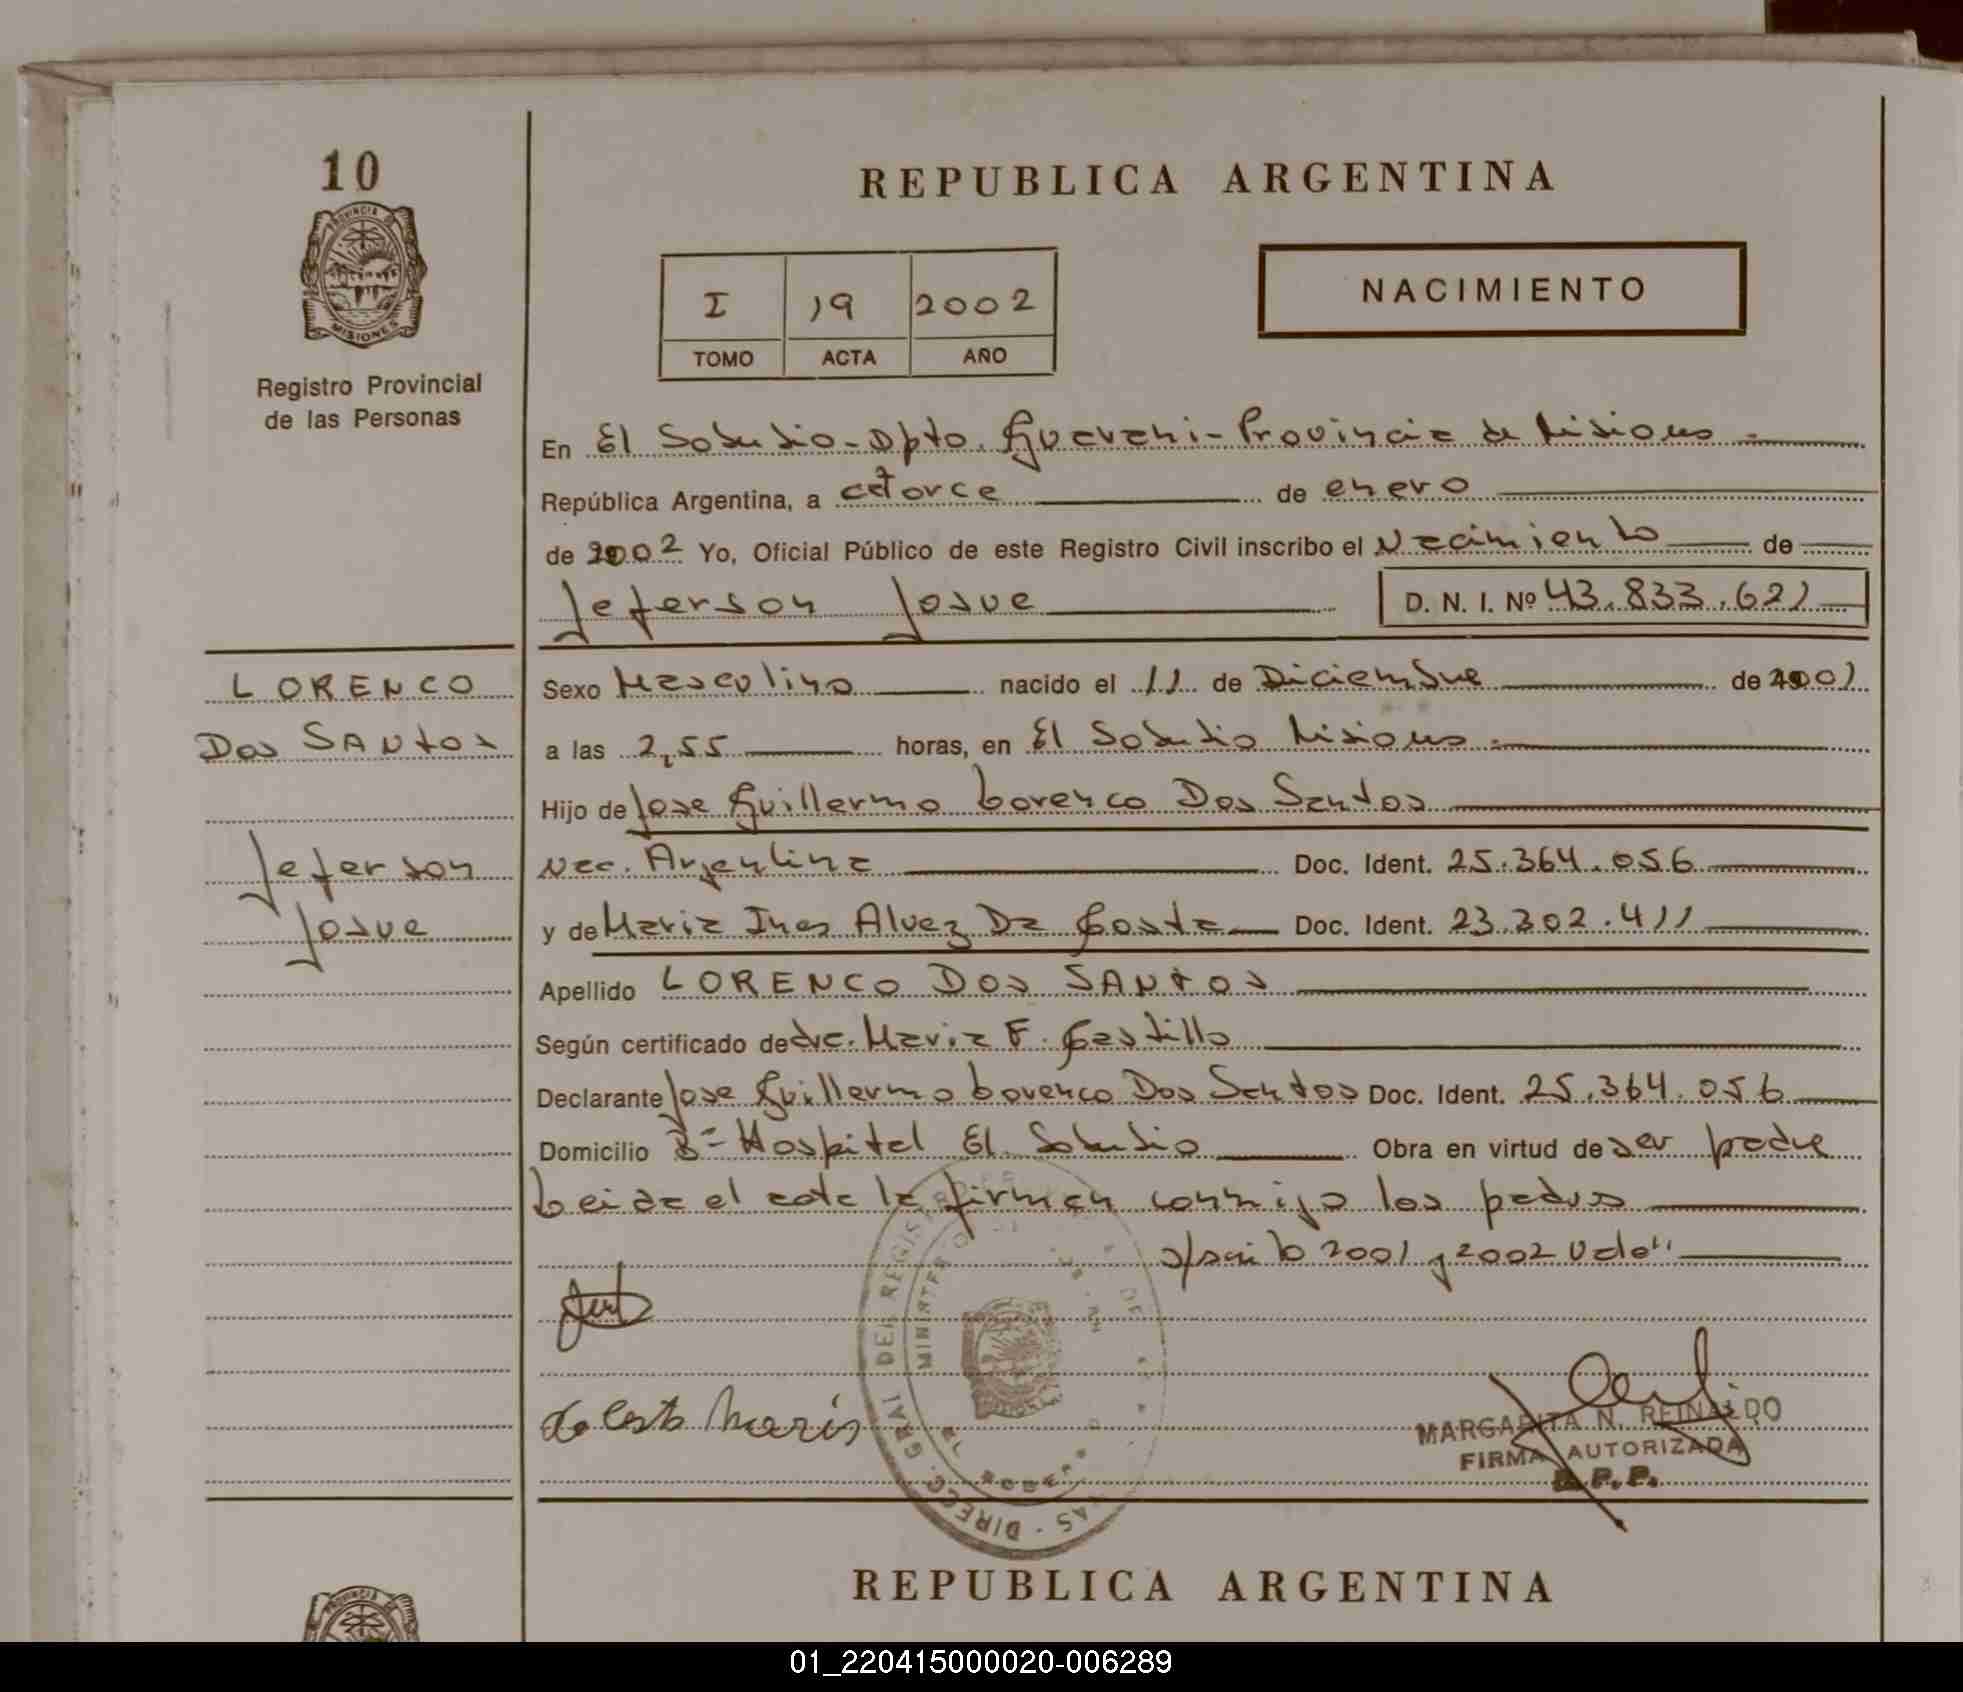 10
PROVINCIA DE
MISIONES
Registro Provincial
de las Personas
REPUBLICA ARGENTINA
I 19 2002
TOMO ACTA AÑO
NACIMIENTO
En El Soberbio - Dpto. Guarani - Provincia de Misiones.
República Argentina, a catorce de enero
de 2002 Yo, Oficial Público de este Registro Civil inscribo el Nacimiento de
Jeferson Josue D. N. I. Nº 43.833.621
LORENCO
Dos SANtos
Jeferson
Josue
Sexo Masculino nacido el 11 de Diciembre de 2001
a las 2,55 horas, en El Soberbio Misiones.
Hijo de Jose Guillermo Lorenco Dos Santos
Nac. Argentina Doc. Ident. 25.364.056
y de Maria Ines Alvez Da Costa Doc. Ident. 23.302.411
Apellido LORENCO Dos SANtos
Según certificado de dra. Maria F. Castillo
Declarante Jose Guillermo Lorenco Dos Santos Doc. Ident. 25.364.056
Domicilio Bº Hospital El Soberbio Obra en virtud de ser padre
Leida el acta la firman conmigo los padres
s/raido 2001 y 2002 Vale"
MARGARITA N. REINALDO
FIRMA AUTORIZADA
R.P.P.
REPUBLICA ARGENTINA
01_220415000020-006289